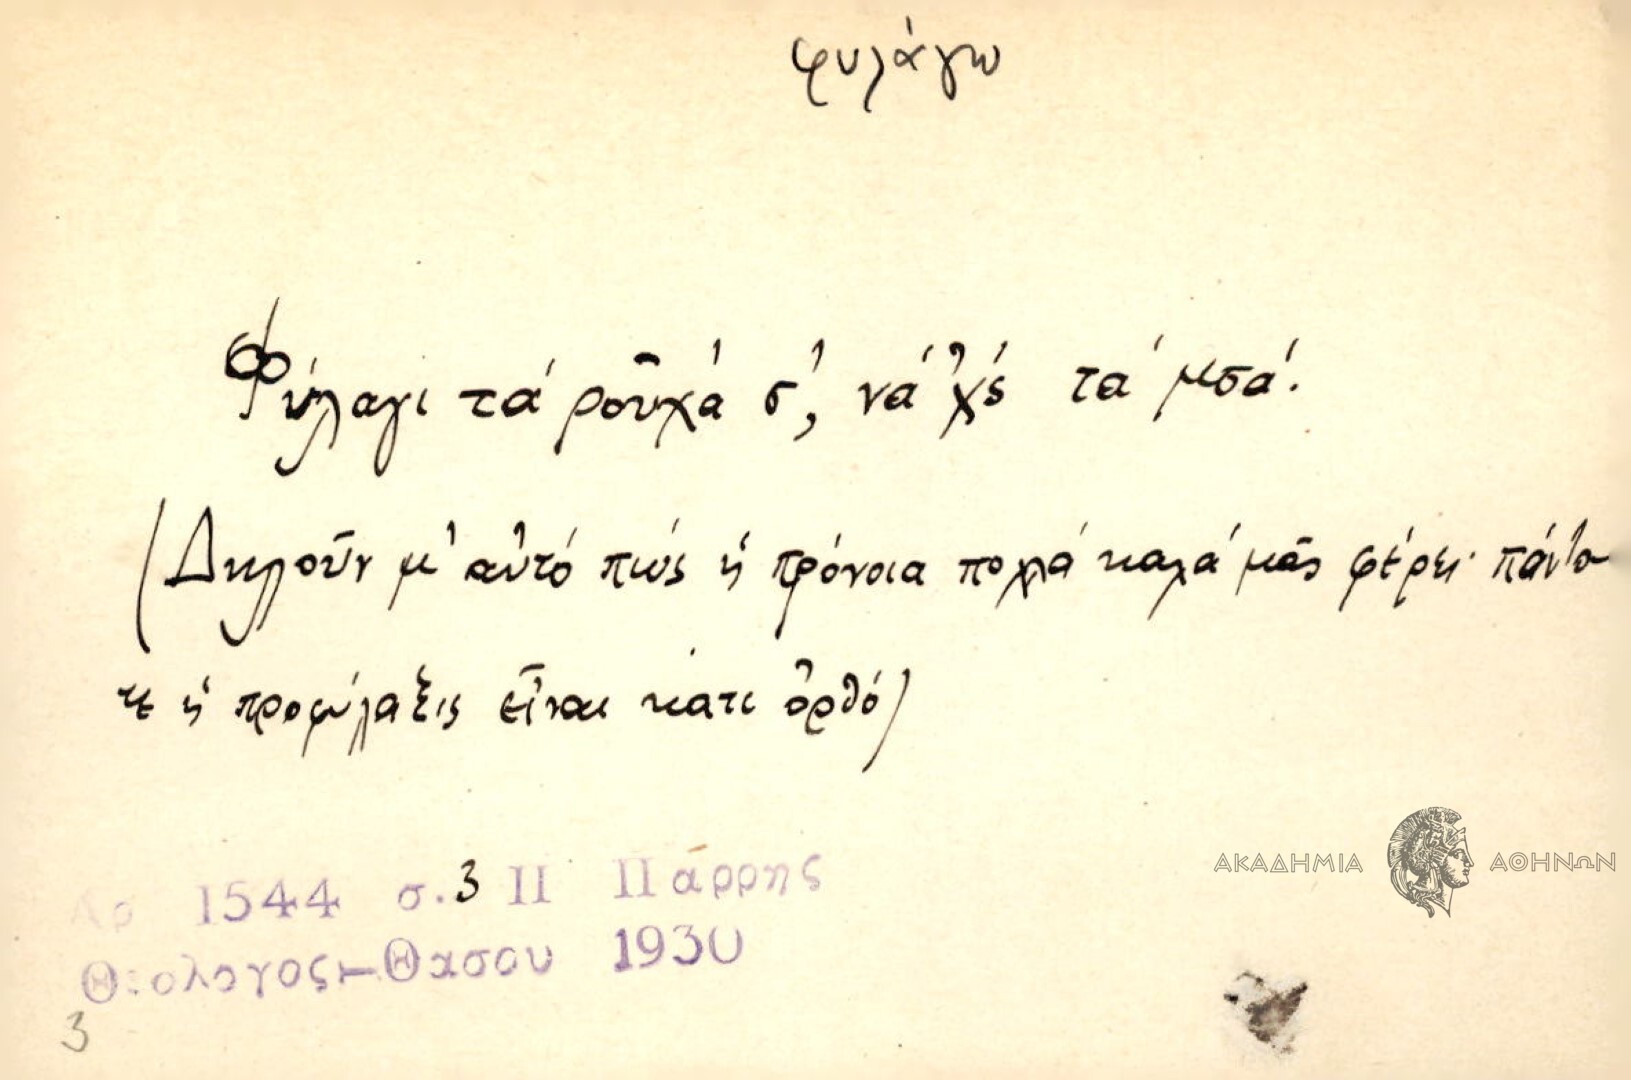 φυλάγω
Φύλαγι τά ροῦχά σ', νά 'χς τά μσά.
(Δηλοῦν μ' αὐτό πώς ἡ πρόνοια πολλά καλά μᾶς φέρει· πάντο
τε ἡ προφύλαξις εἶναι κάτι ὀρθό)
ΑΚΑΔΗΜΙΑ ΑΘΗΝΩΝ
Αρ 1544 σ. 3 ΙΙ Πάρρης
Θεολογος-Θασου 1930
3